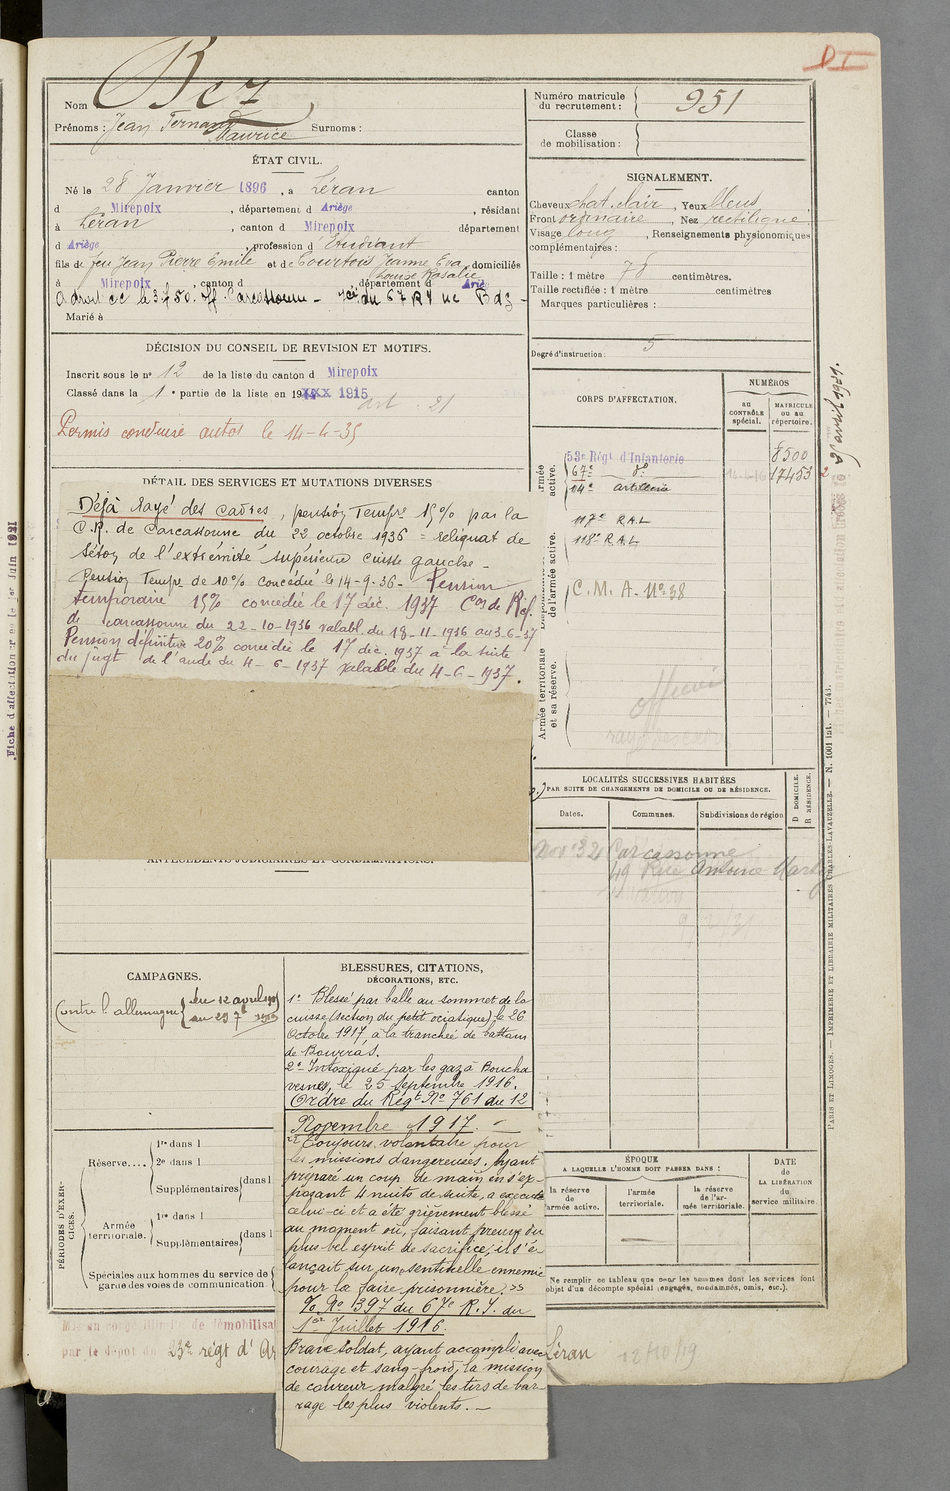 Nom Bez
Prénoms : Jean Fernand Maurice Surnoms :
ÉTAT CIVIL.
Né le 28 Janvier 1896, à Léran canton
d Mirepoix, département d Ariège, résidant
à Léran, canton d Mirepoix département
d Ariège, profession d Etudiant
fils de feu Jean Pierre Emile et de Courtois Jeanne Eva Louise Rosalie domiciliés
à Mirepoix, canton d , département d Ariè
Marié à
DÉCISION DU CONSEIL DE REVISION ET MOTIFS.
Inscrit sous le n° 12 de la liste du canton d Mirepoix
Classé dans la 1e partie de la liste en 19 1915
art. 21
Permis conduire autos le 14-4-35
DÉTAIL DES SERVICES ET MUTATIONS DIVERSES
Déjà Rayé des cadres, pension Tempre 15% par la
C.R. de Carcassonne du 22 octobre 1936 = reliquat de
Séton de l'extrémité supérieure cuisse gauche -
Pension Tempre de 10% concédée le 14-9-36 - Pension
temporaire 15% concédée le 17 déc. 1937 Con de Réf.
de Carcassonne du 22-10-1936 valabl. du 18-11-1936 au 3-6-37
Pension définitive 20% concédée le 17 déc. 1937 à la suite
du jugt de l'aude du 4-6-1937 valable du 4-6-1937.
ANTÉCÉDENTS JUDICIAIRES ET CONDAMNATIONS.
CAMPAGNES.
Contre l'allemagne { du 12 avril
au 23 7bre
BLESSURES, CITATIONS,
DÉCORATIONS, ETC.
1° Blessé par balle au sommet de la
cuisse (section du petit sciatique), le 26
Octobre 1917, à la tranchée de
de
2° Intoxiqué par les gaz à Boucha
vesnes, le 25 Septembre 1916.
Ordre du Régt No 761 du 12
Novembre 1917. -
"Toujours volontaire pour
les missions dangereuses. Ayant
préparé un coup de main en s'ex-
posant 4 nuits de suite, a exécuté
celui-ci et a été grièvement blessé
au moment où, faisant preuve du
plus bel esprit de sacrifice, il s'é
lançait sur une sentinelle ennemie
pour la faire prisonnière. »
O. No 1397 du 67e R.I. du
1er Juillet 1916.
Brave soldat, ayant accompli avec
courage et sang-froid, la mission
de coureur malgré les tirs de bar-
rage les plus violents. -
PÉRIODES D'EXER-
CICES.
Réserve....
1re dans l
2e dans l
Supplémentaires dans l
Armée
territoriale.
1re dans l
Supplémentaires dans l
Spéciales aux hommes du service de
garde des voies de communication
Mis en congé illimité de démobilisa
par le dépôt du 23e régt d' Ar
Numéro matricule
du recrutement : 951
Classe
de mobilisation :
SIGNALEMENT.
Cheveux chat. clair, Yeux bleus
Front ordinaire, Nez rectiligne
Visage long, Renseignements physionomiques
complémentaires :
Taille : 1 mètre 78 centimètres.
Taille rectifiée : 1 mètre centimètres
Marques particulières :
Degré d'instruction : 5
CORPS D'AFFECTATION.
NUMÉROS
AU
CONTRÔLE
spécial.
MATRICULE
OU AU
répertoire.
Armée
active.
53e Régt d'Infanterie 8500
67e do 17453
14e artillerie
117e R.A.L
118e R.A.L
de l'armée active.
C.M.A. No 38
Armée territoriale
et sa réserve.
officier
LOCALITÉS SUCCESSIVES HABITÉES
PAR SUITE DE CHANGEMENTS DE DOMICILE OU DE RÉSIDENCE.
Dates.
Communes.
Subdivisions de région
D DOMICILE.
R RÉSIDENCE.
Nov. 32 Carcassonne
49 Rue Antoine Marty
ÉPOQUE
A LAQUELLE L'HOMME DOIT PASSER DANS :
la réserve
de
l'armée active.
l'armée
territoriale.
la réserve
de l'ar-
mée territoriale.
DATE
de
LA LIBÉRATION
du
service militaire.
Ne remplir ce tableau que pour les hommes dont les services font
objet d'un décompte spécial (engagés, condamnés, omis, etc.).
Léran 12/10/19
PARIS ET LIMOGES. — IMPRIMERIE ET LIBRAIRIE MILITAIRES CHARLES-LAVAUZELLE. — N. 1001 int. — 7743.